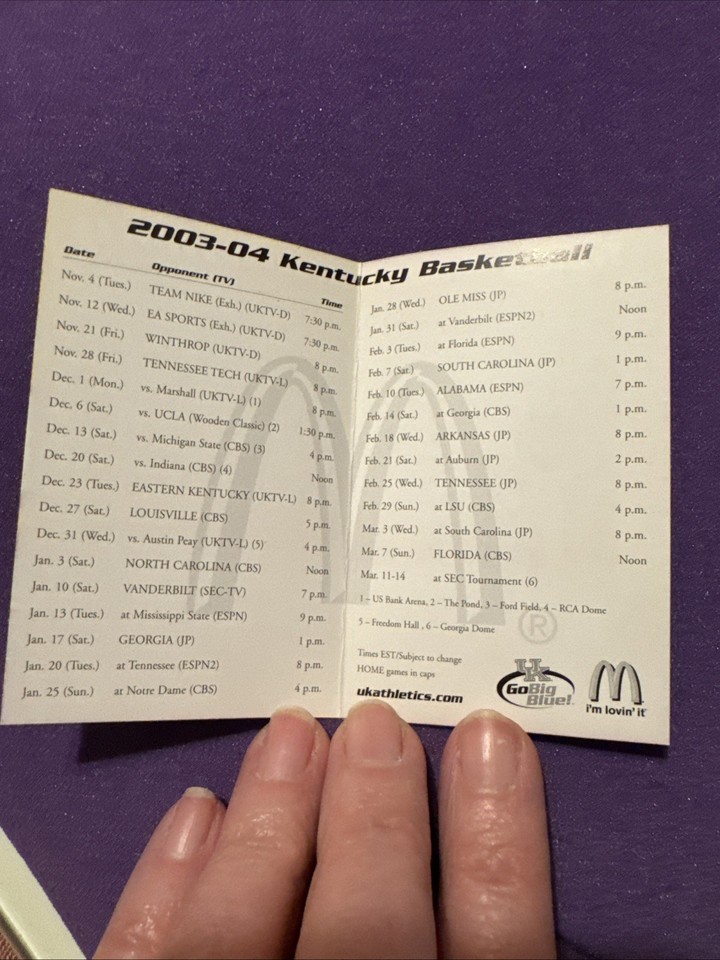 2003-04 Kentucky Basketball
Date Opponent (TV) Time
Nov. 4 (Tues.) TEAM NIKE (Exh.) (UKTV-D) 7:30 p.m.
Nov. 12 (Wed.) EA SPORTS (Exh.) (UKTV-D) 7:30 p.m.
Nov. 21 (Fri.) WINTHROP (UKTV-D) 8 p.m.
Nov. 28 (Fri.) TENNESSEE TECH (UKTV-L) 8 p.m.
Dec. 1 (Mon.) vs. Marshall (UKTV-L) (1) 8 p.m.
Dec. 6 (Sat.) vs. UCLA (Wooden Classic) (2) 1:30 p.m.
Dec. 13 (Sat.) vs. Michigan State (CBS) (3) 4 p.m.
Dec. 20 (Sat.) vs. Indiana (CBS) (4) Noon
Dec. 23 (Tues.) EASTERN KENTUCKY (UKTV-L) 8 p.m.
Dec. 27 (Sat.) LOUISVILLE (CBS) 5 p.m.
Dec. 31 (Wed.) vs. Austin Peay (UKTV-L) (5) 4 p.m.
Jan. 3 (Sat.) NORTH CAROLINA (CBS) Noon
Jan. 10 (Sat.) VANDERBILT (SEC-TV) 7 p.m.
Jan. 13 (Tues.) at Mississippi State (ESPN) 9 p.m.
Jan. 17 (Sat.) GEORGIA (JP) 1 p.m.
Jan. 20 (Tues.) at Tennessee (ESPN2) 8 p.m.
Jan. 25 (Sun.) at Notre Dame (CBS) 4 p.m.
Jan. 28 (Wed.) OLE MISS (JP) 8 p.m.
Jan. 31 (Sat.) at Vanderbilt (ESPN2) Noon
Feb. 3 (Tues.) at Florida (ESPN) 9 p.m.
Feb. 7 (Sat.) SOUTH CAROLINA (JP) 1 p.m.
Feb. 10 (Tues.) ALABAMA (ESPN) 7 p.m.
Feb. 14 (Sat.) at Georgia (CBS) 1 p.m.
Feb. 18 (Wed.) ARKANSAS (JP) 8 p.m.
Feb. 21 (Sat.) at Auburn (JP) 2 p.m.
Feb. 25 (Wed.) TENNESSEE (JP) 8 p.m.
Feb. 29 (Sun.) at LSU (CBS) 4 p.m.
Mar. 3 (Wed.) at South Carolina (JP) 8 p.m.
Mar. 7 (Sun.) FLORIDA (CBS) Noon
Mar. 11-14 at SEC Tournament (6)
1 – US Bank Arena, 2 – The Pond, 3 – Ford Field, 4 – RCA Dome
5 – Freedom Hall , 6 – Georgia Dome
®
Times EST/Subject to change
HOME games in caps
ukathletics.com
UK
GoBig
Blue!
i'm lovin' it